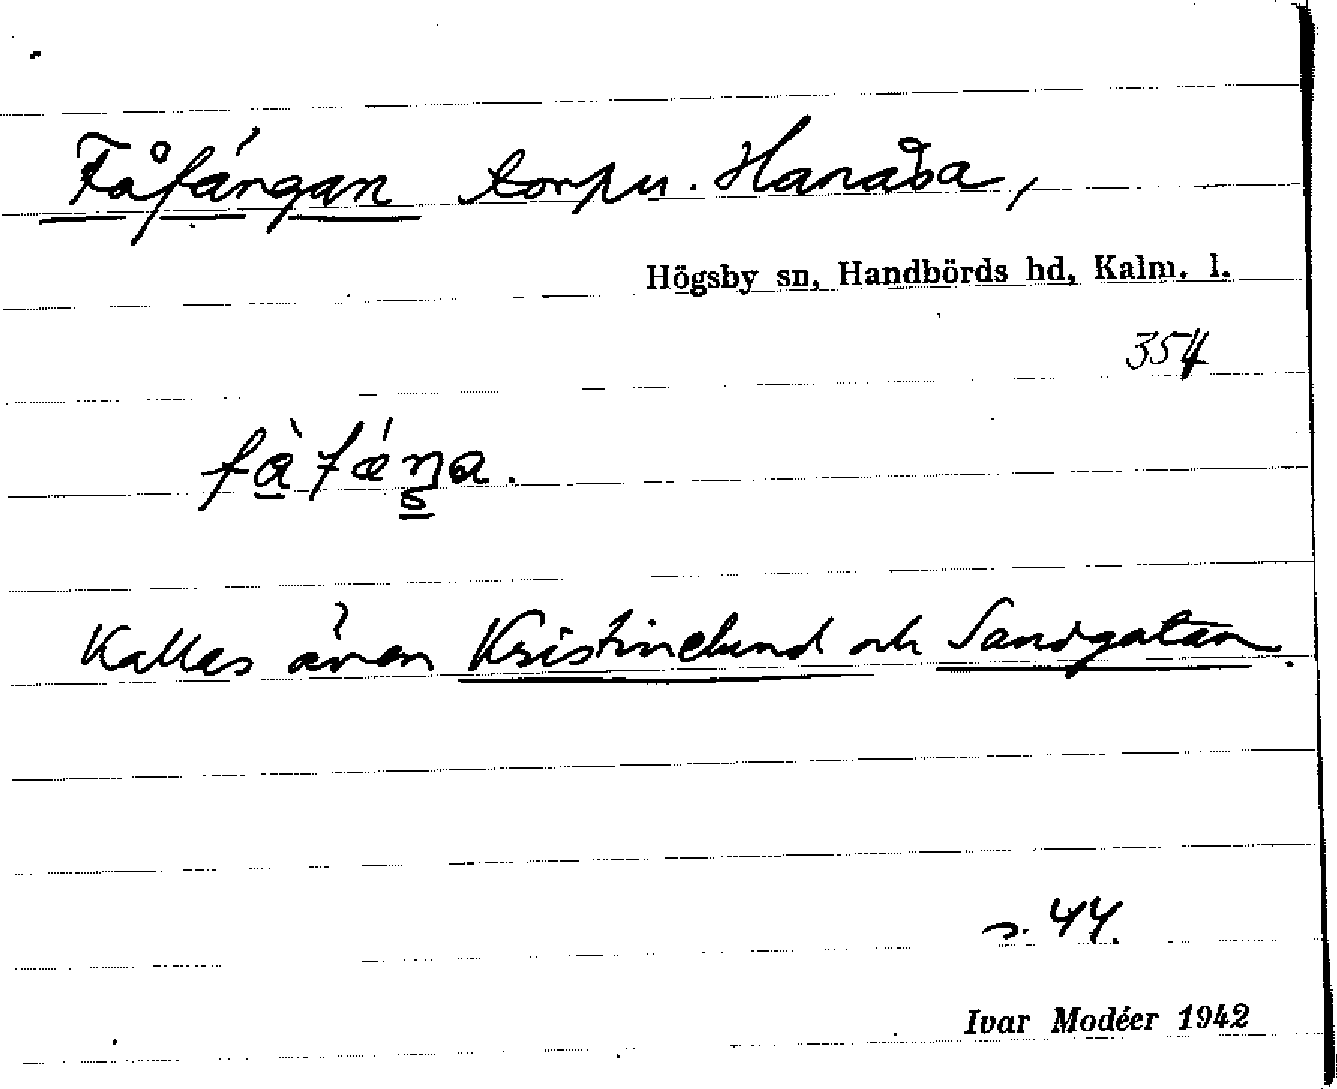 Fåfängan torpu. Hanåsa,
Högsby sn, Handbörds hd, Kalm. l.
354
fàfǽŋa.
Kallas även Kristinelund och Sandgatan.
s. 44.
Ivar Modéer 1942